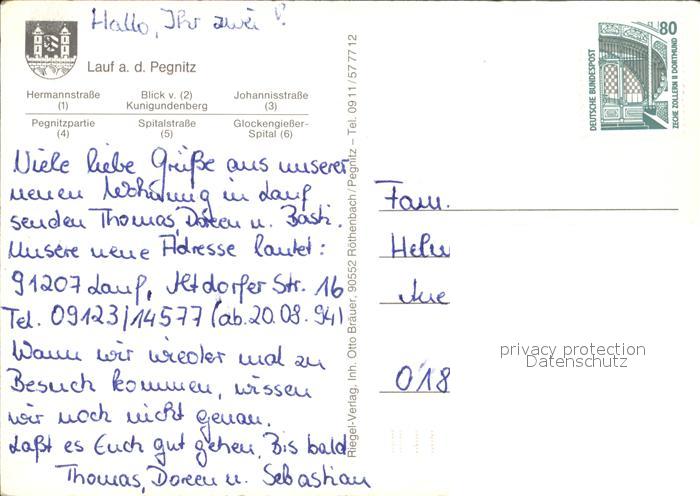 Hallo, Ihr zwei!
Lauf a. d. Pegnitz
Hermannstraße (1)
Blick v. (2) Kunigundenberg
Johannisstraße (3)
Pegnitzpartie (4)
Spitalstraße (5)
Glockengießer-Spital (6)
Viele liebe Grüße aus unserer
neuen Wohnung in Lauf
senden Thomas, Doreen u. Basti.
Unsere neue Adresse lautet:
91207 Lauf, Altdorfer Str. 16
Tel. 09123/14577 (ab 20.08.94)
Wann wir wieder mal zu
Besuch kommen, wissen
wir noch nicht genau.
Laßt es Euch gut gehen, Bis bald
Thomas, Doreen u. Sebastian
Riegel-Verlag, Inh. Otto Bräuer, 90552 Röthenbach/Pegnitz – Tel. 09 11/57 77 12
DEUTSCHE BUNDESPOST
80
ZECHE ZOLLERN II DORTMUND
Fam.
Helm
Aue
018
privacy protection
Datenschutz